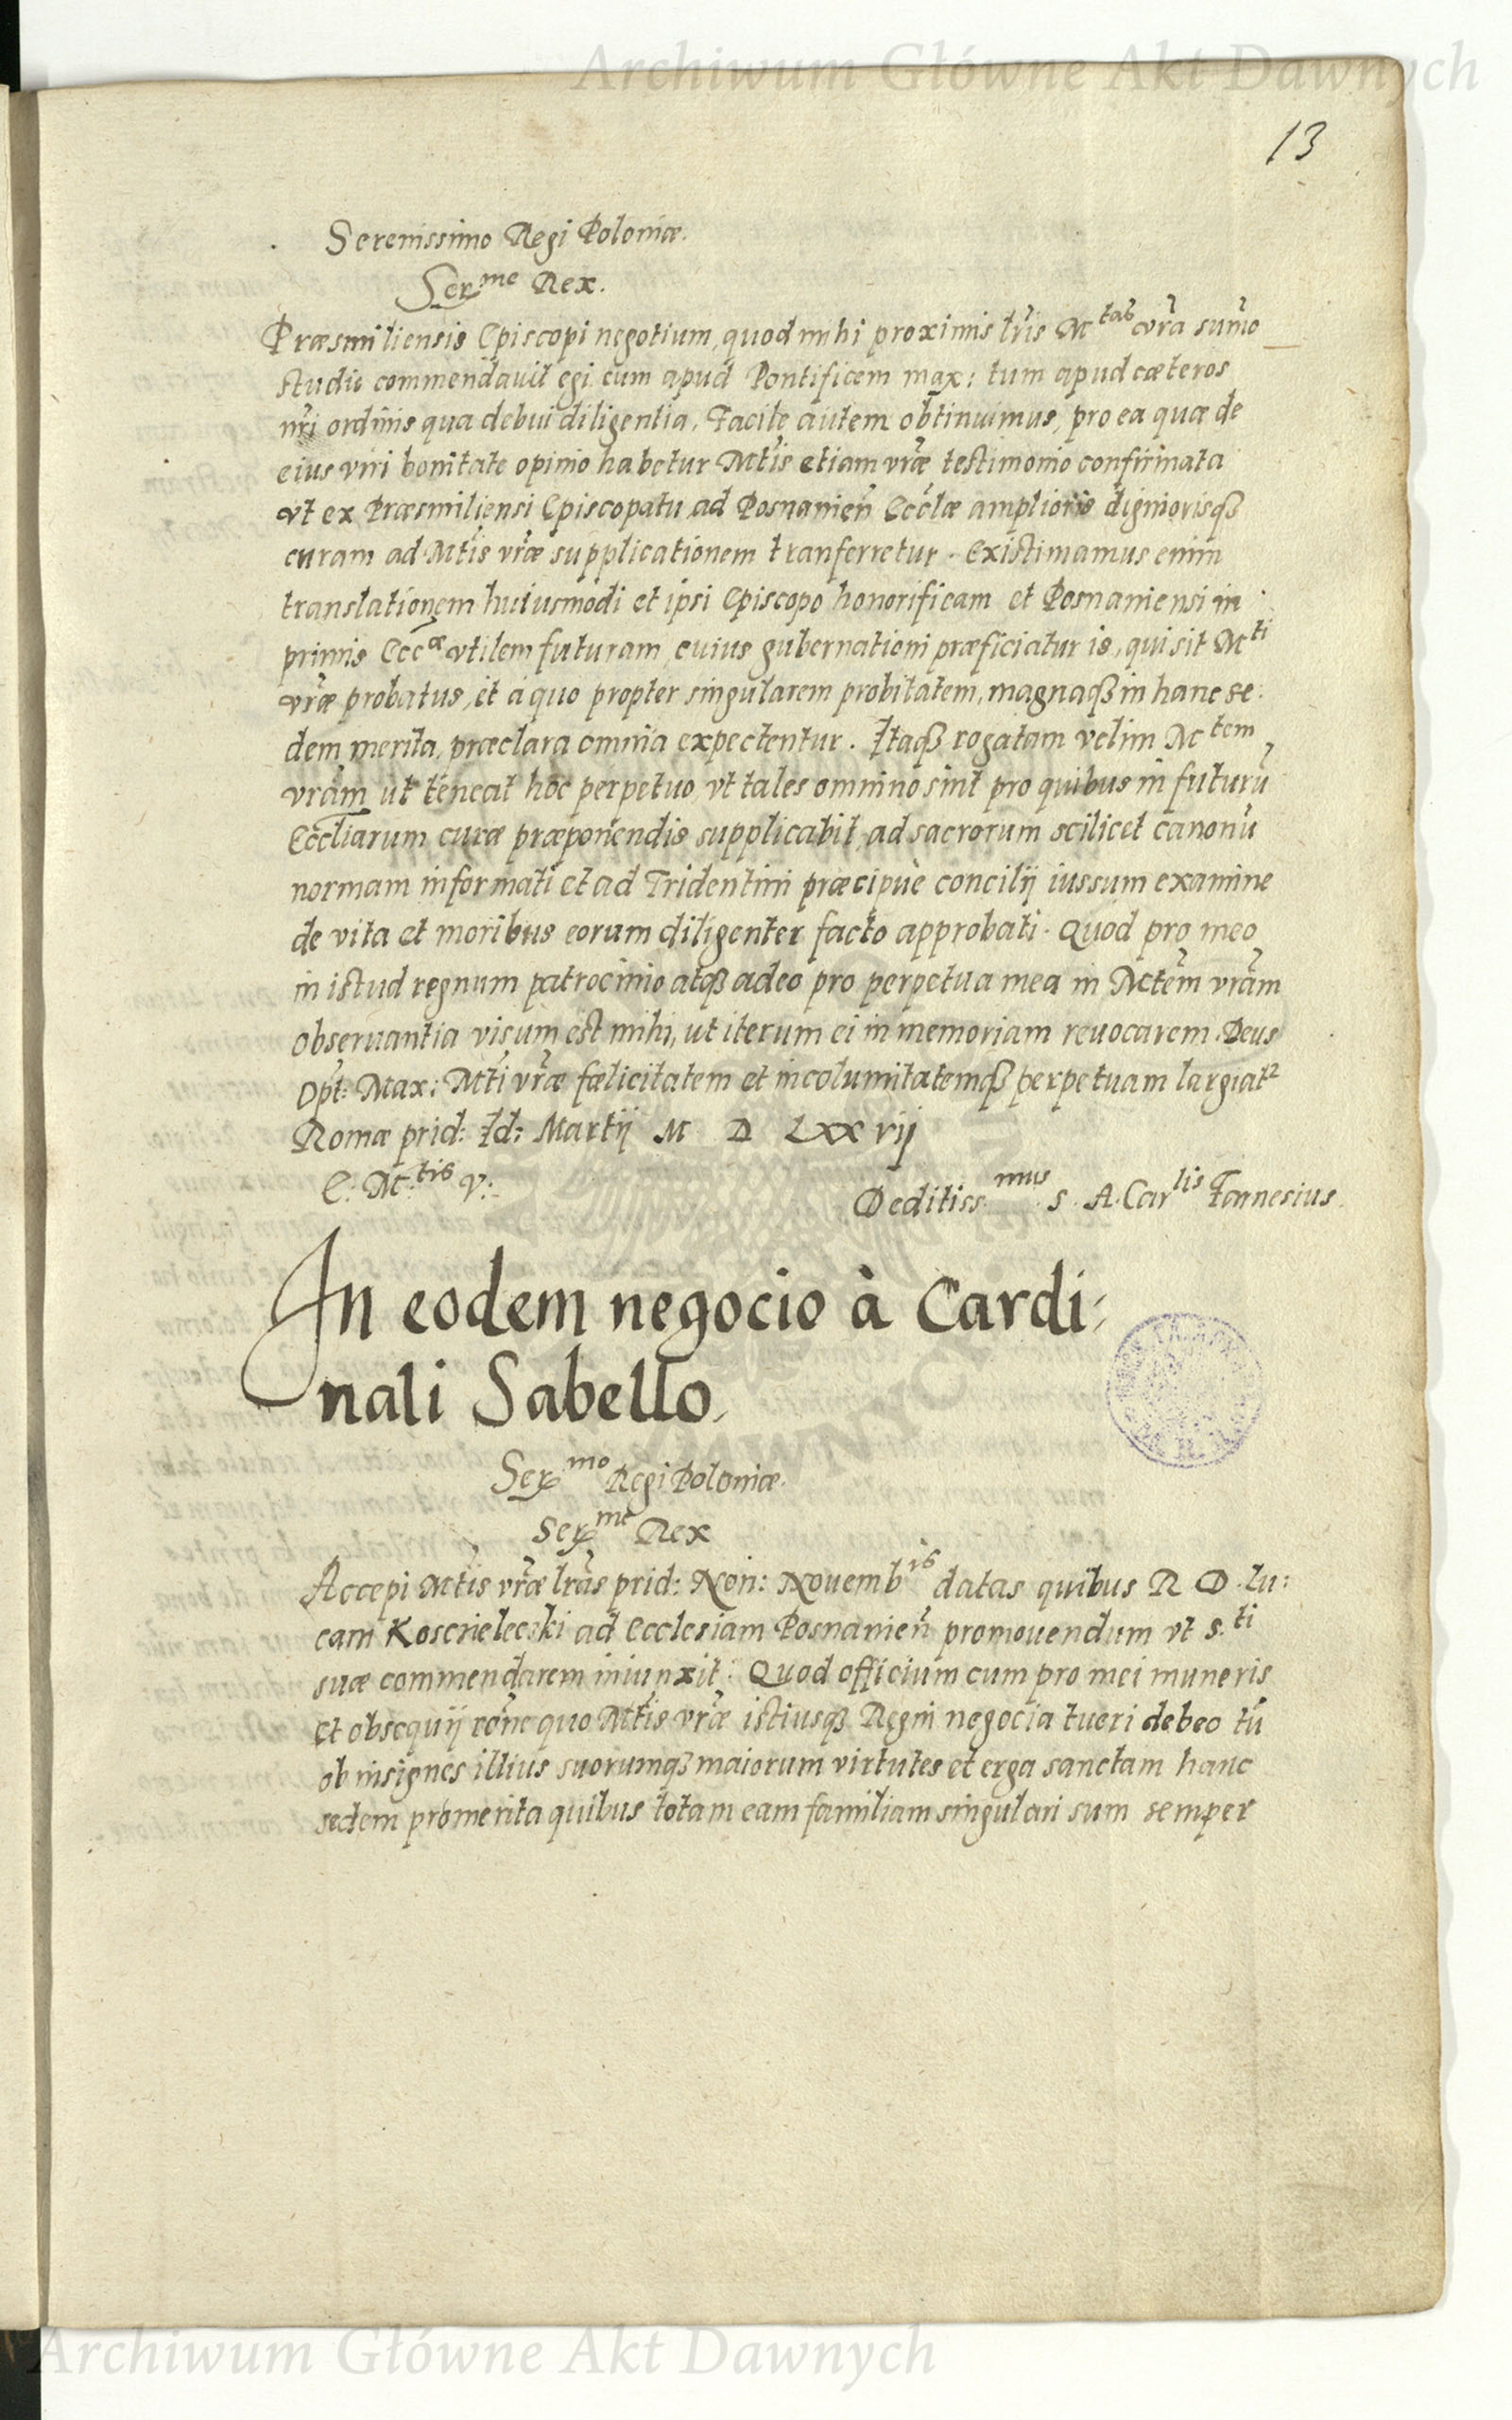 Archiwum Główne Akt Dawnych
13
Serenissimo Regi Poloniæ.
Ser.me Rex.
Præsmiliensis Episcopi negotium, quod mihi proximis lr̃is M.tas vr̃a sum̃o
studio commendauit egi cum apud Pontificem max: tum apud cæteros
nr̃i ordinis qua debui diligentia. Facile autem obtinuimus, pro ea quæ de
eius viri bonitate opinio habetur Mt̃is etiam vr̃æ testimonio confirmata
vt ex Præsmiliensi Episcopatu ad Posnanien̄ Eccl̃æ amplioris dignioris⁊q3
curam ad Mt̃is vr̃æ supplicationem tranferretur. Existimamus enim
translationem huiusmodi et ipsi Episcopo honorificam et Posnaniensi in
primis Eccæ vtilem futuram, cuius gubernationi præficiatur is, qui sit M.ti
vr̃æ probatus, et à quo propter singularem probitatem, magnaq3 in hanc se:
dem merita, præclara omnia expectentur. Itaq3 rogatam velim M.tem
vr̃am ut teneat hoc perpetuo, vt tales omnino sint pro quibus in futurũ
Eccl̃iarum curæ præponendis supplicabit, ad sacrorum scilicet canonũ
normam informati et ad Tridentini præcipuè concilij iussum examine
de vita et moribus eorum diligenter facto approbati. Quod pro meo
in istud regnum patrocinio atq3 adeo pro perpetua mea in Mtem̃ vr̃am
obseruantia visum est mihi, ut iterum ei in memoriam reuocarem. Deus
Opt: Max: Mt̃i vr̃æ fælicitatem et incolumitatemq3 perpetuam largiat2
Romæ prid: Id: Martij M D LXXVij
E: M.tis V:
Deditiss.mus S. A. Car.lis Farnesius.
In eodem negocio à Cardi:
nali Sabello.
Ser.mo Regi Poloniæ.
Ser.me Rex
Accepi Mt̃is vr̃æ lr̃as prid: Non: Novembris datas quibus R D. Lu:
cam Koscielecski ad Ecclesiam Posnanien̄ promouendum vt S.ti
suæ commendarem iniunxit. Quod officium cum pro mei muneris
et obsequij rõne quo Mt̃is vr̃æ istiusq3 Regni negocia tueri debeo tũ
ob insignes illius suorumq3 maiorum virtutes et erga sanctam hanc
sedem promerita quibus totam eam familiam singulari sum semper
Archiwum Główne Akt Dawnych